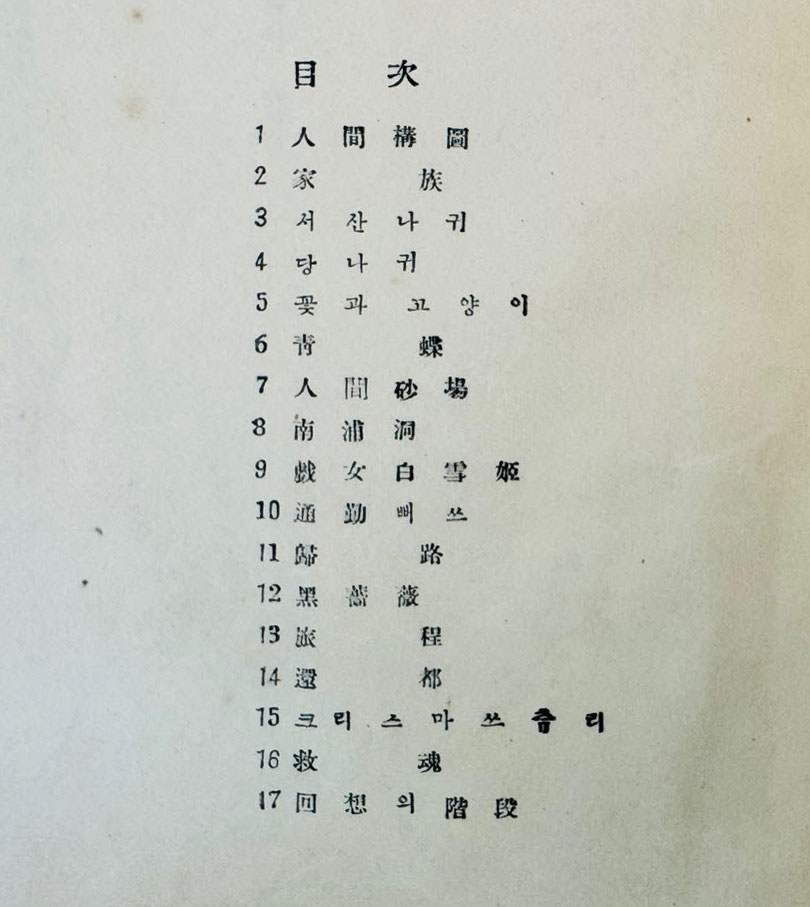 目 次
1 人間構圖
2 家族
3 서산나귀
4 당나귀
5 꽃과 고양이
6 靑蝶
7 人間砂場
8 南浦洞
9 戱女白雪姬
10 通勤뻐쓰
11 歸路
12 黑薔薇
13 旅程
14 還都
15 크리스마쓰츄리
16 救魂
17 回想의階段